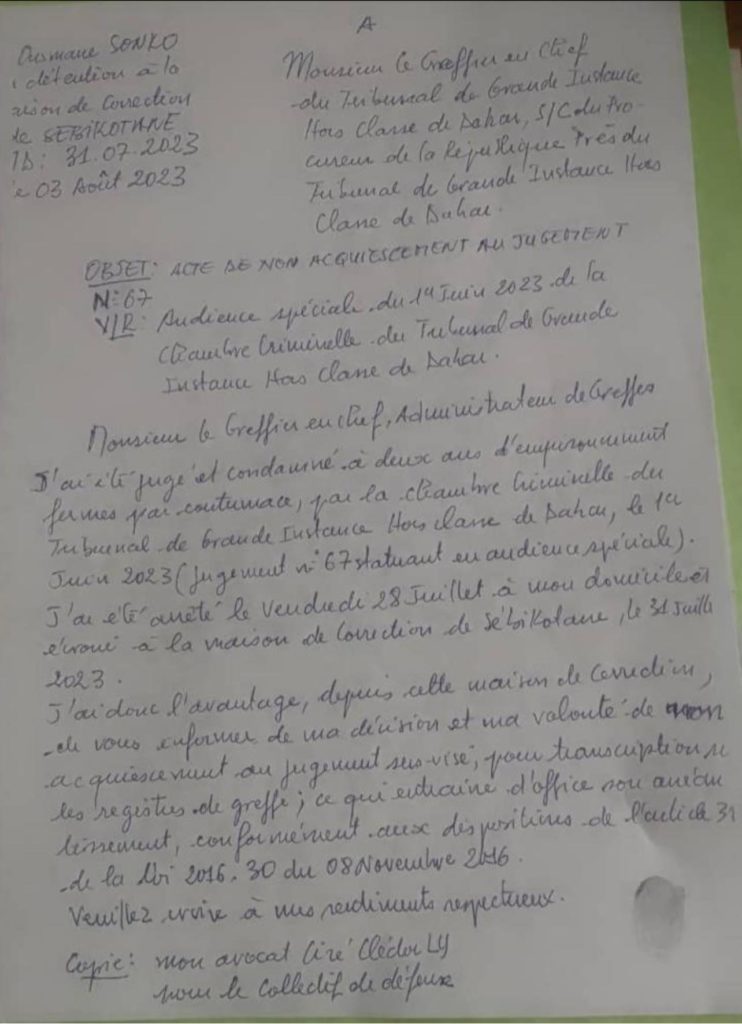 A
Ousmane SONKO
détention à la
aison de Correction
de SEBIKOTANE
MD: 31.07.2023
le 03 Août 2023
Monsieur le Greffier en Chief
du Tribunal de Grande Instance
Hors Classe de Dakar, S/C du Pro-
cureur de la République Près du
Tribunal de Grande Instance Hors
Classe de Dakar.
OBJET: ACTE DE NON ACQUIESCEMENT AU JUGEMENT
N°67
V/R: Audience spéciale du 1er Juin 2023 de la
Chambre Criminelle du Tribunal de Grande
Instance Hors Classe de Dakar.
Monsieur le Greffier en chef, Administrateur de Greffes
J'ai été jugé et condamné à deux ans d'emprisonnement
fermes par contumace, par la chambre Criminelle du
Tribunal de Grande Instance Hors classe de Dakar, le 1er
Juin 2023 (jugement n°67 statuant en audience spéciale).
J'ai été arrêté le Vendredi 28 Juillet à mon domicile et
écroué à la maison de Correction de Sébikotane, le 31 Juillet
2023.
J'ai donc l'avantage, depuis cette maison de Correction,
de vous informer de ma décision et ma volonté de non
acquiescement au jugement sus-visé, pour transcription
les registres de greffe; ce qui entraine d'office son anéan
tissement, conformément aux dispositions de l'article 31
de la Loi 2016.30 du 08 Novembre 2016.
Veuillez croire à mes sentiments respectueux.
Copie: mon avocat Ciré Clédor LY
pour le Collectif de défense